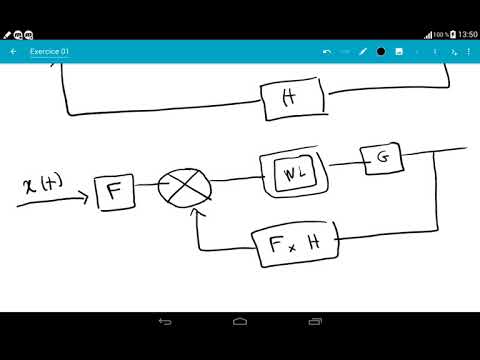 100 % 13:50
Exercice 01
H
x(t)
F
WL
G
F x H